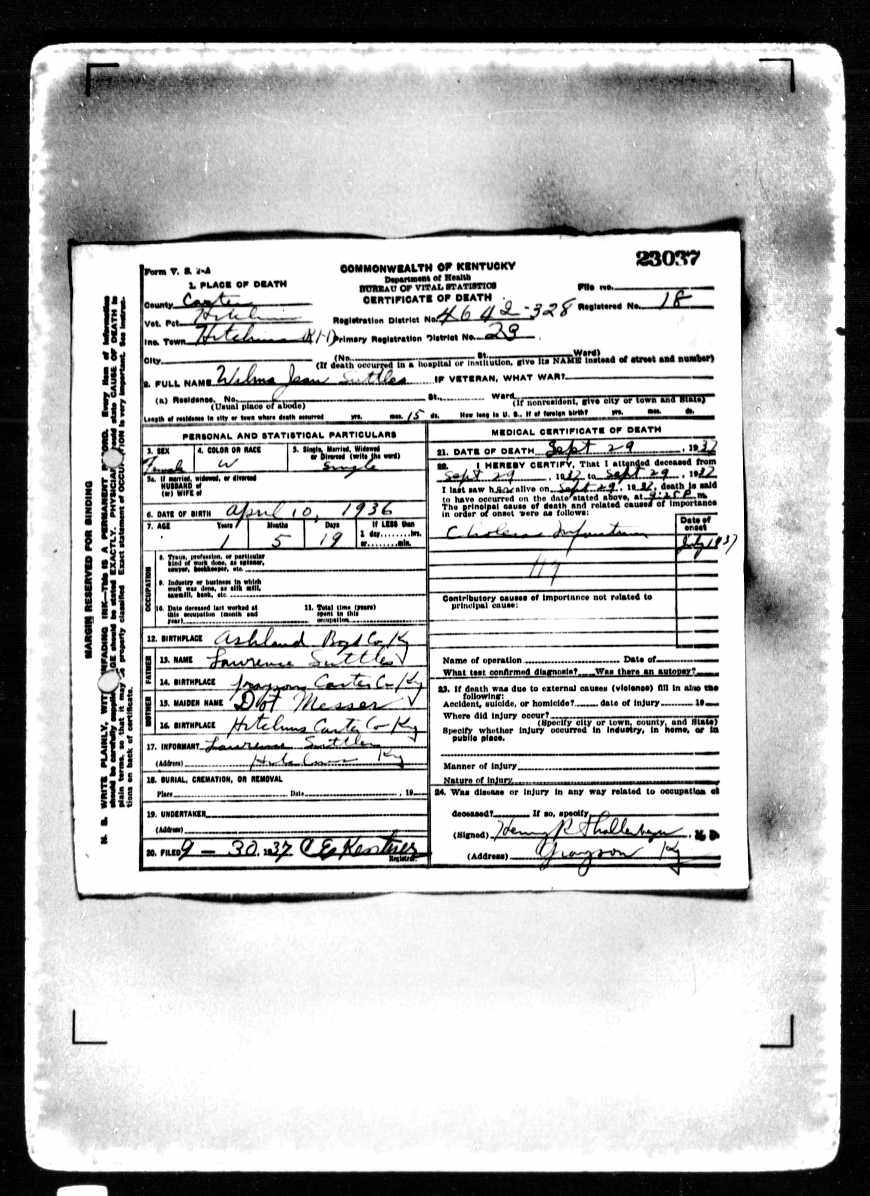 23037
Form V. S. 1-A
COMMONWEALTH OF KENTUCKY
Department of Health
BUREAU OF VITAL STATISTICS
CERTIFICATE OF DEATH
File No.
1. PLACE OF DEATH
County Carter
Vot. Pct. Hitchins
Inc. Town Hitchins
Registration District No. 4642-328 Registered No. 18
Primary Registration District No. 29
City (No. St. Ward)
(If death occurred in a hospital or institution, give its NAME instead of street and number)
2. FULL NAME Wilma Jean Suttles IF VETERAN, WHAT WAR?
(a) Residence. No. St., Ward
(Usual place of abode) (If nonresident, give city or town and State)
Length of residence in city or town where death occurred yrs. mos. 15 ds. How long in U. S., if of foreign birth? yrs. mos. ds.
PERSONAL AND STATISTICAL PARTICULARS
3. SEX Female
4. COLOR OR RACE W
5. Single, Married, Widowed or Divorced (write the word) Single
5a. If married, widowed, or divorced
HUSBAND of
(or) WIFE of
6. DATE OF BIRTH April 10, 1936
7. AGE Years Months Days If LESS than
1 day........hrs.
or........min.
1 5 19
OCCUPATION
8. Trade, profession, or particular
kind of work done, as spinner,
sawyer, bookkeeper, etc.
9. Industry or business in which
work was done, as silk mill,
sawmill, bank, etc.
10. Date deceased last worked at
this occupation (month and
year)
11. Total time (years)
spent in this
occupation
12. BIRTHPLACE Ashland Boyd Co. Ky
FATHER
13. NAME Lawrence Suttles
14. BIRTHPLACE Grayson Carter Co Ky
MOTHER
15. MAIDEN NAME Dot Messer
16. BIRTHPLACE Hitchins Carter Co Ky
17. INFORMANT Lawrence Suttles
(Address) Hitchins Ky
18. BURIAL, CREMATION, OR REMOVAL
Place Date , 19
19. UNDERTAKER
(Address)
20. FILED 9-30, 1937 Registrar.
MEDICAL CERTIFICATE OF DEATH
21. DATE OF DEATH Sept 29, 1937
22. I HEREBY CERTIFY, That I attended deceased from
Sept 29, 1937 to Sept 29, 1937
I last saw her alive on Sept 29, 1937, death is said
to have occurred on the date stated above, at 9:25 P m.
The principal cause of death and related causes of importance
in order of onset were as follows:
Date of onset
Cholera Infantum July 1937
119
Contributory causes of importance not related to
principal cause:
Name of operation Date of
What test confirmed diagnosis? Was there an autopsy?
23. If death was due to external causes (violence) fill in also the
following:
Accident, suicide, or homicide? date of injury 19
Where did injury occur?
(Specify city or town, county, and State)
Specify whether injury occurred in industry, in home, or in
public place.
Manner of injury
Nature of injury
24. Was disease or injury in any way related to occupation of
deceased? If so, specify
(Signed) Henry R , M D
(Address) Grayson Ky
MARGIN RESERVED FOR BINDING